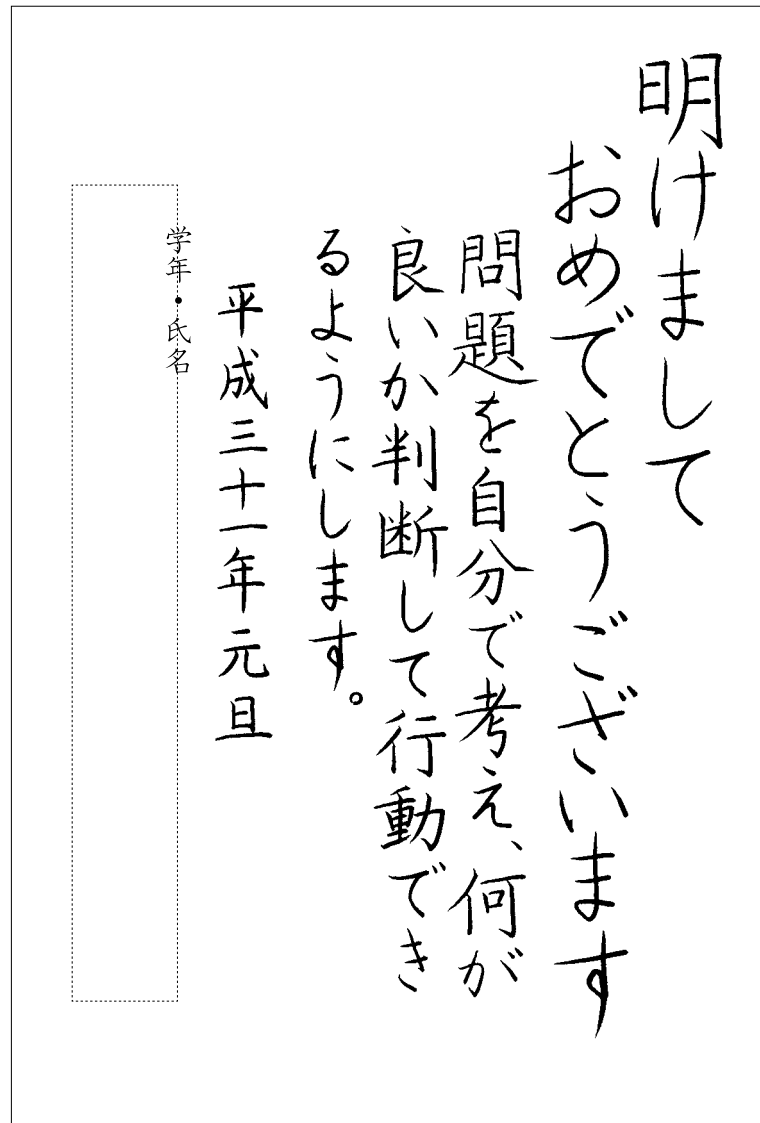 明けまして
おめでとうございます
問題を自分で考え、何が
良いか判断して行動でき
るようにします。
平成三十一年元旦
学年・氏名